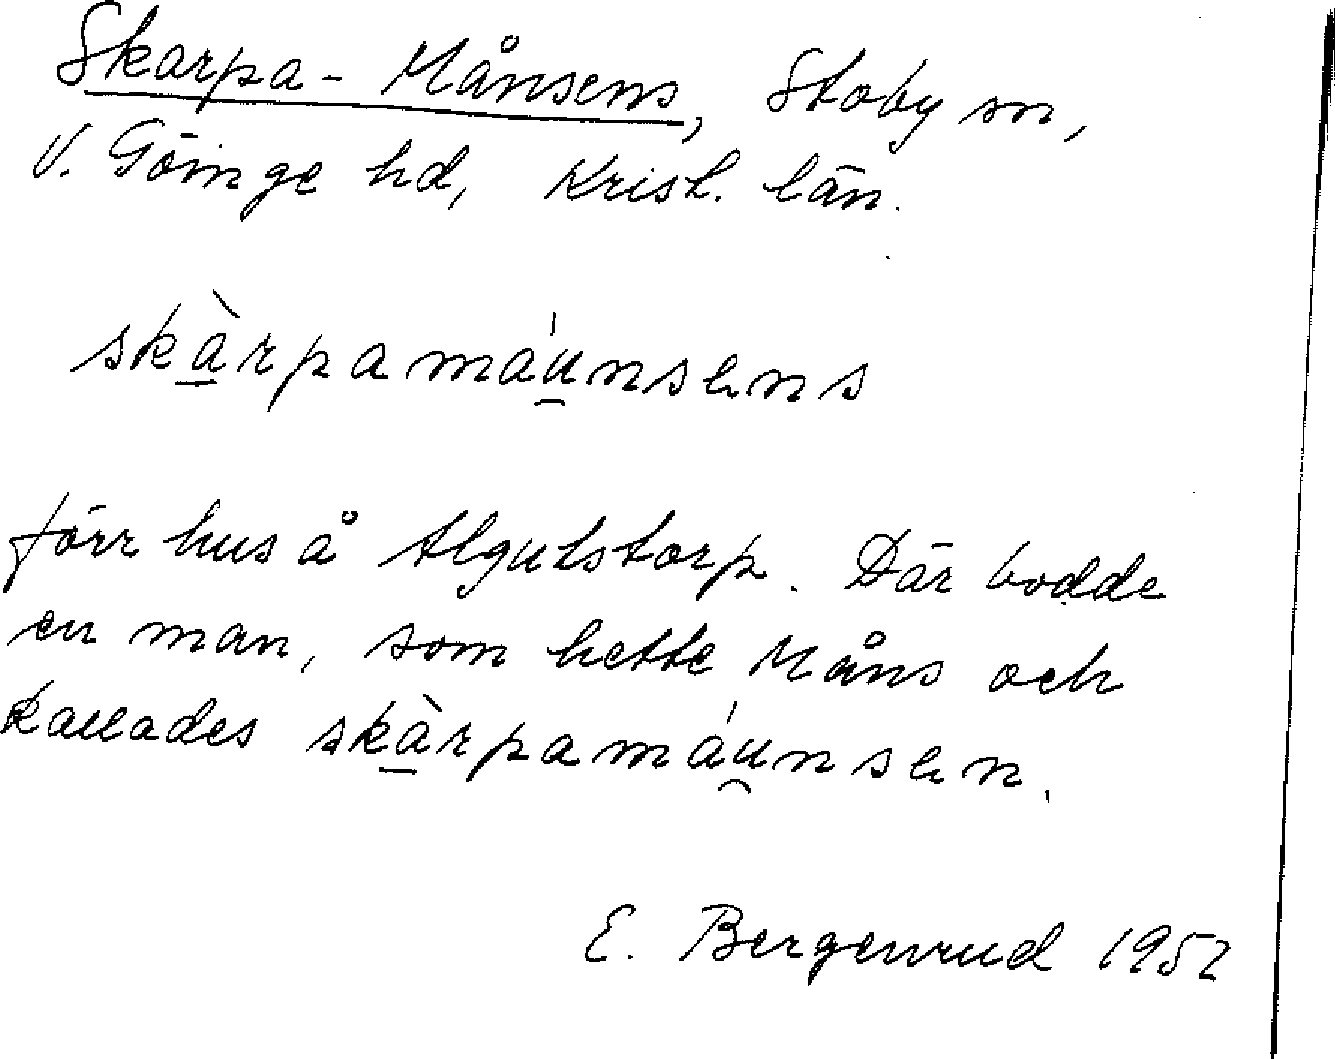 Skarpa-Månsens, Stoby sn,
V. Göinge hd, Krist. län.
skàrpamáu̯nsəns
förr hus å Algutstorp. Där bodde
en man, som hette Måns och
kallades skàrpamáu̯nsən.
E. Bergenrud 1952